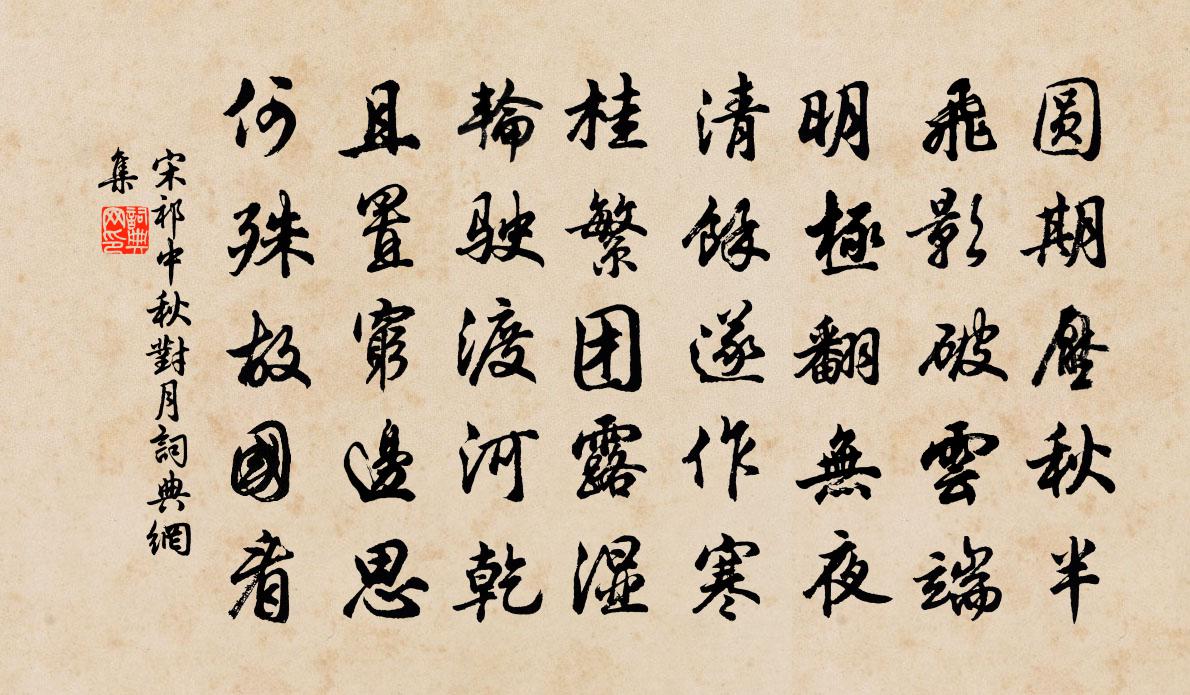 圆期壓秋半
飛影破雲端
明極翻無夜
清餘遂作寒
桂繁团露湿
輪駛渡河乾
且置窮邊思
何殊故國看
宋祁中秋對月詞典網
集
詞典
网印